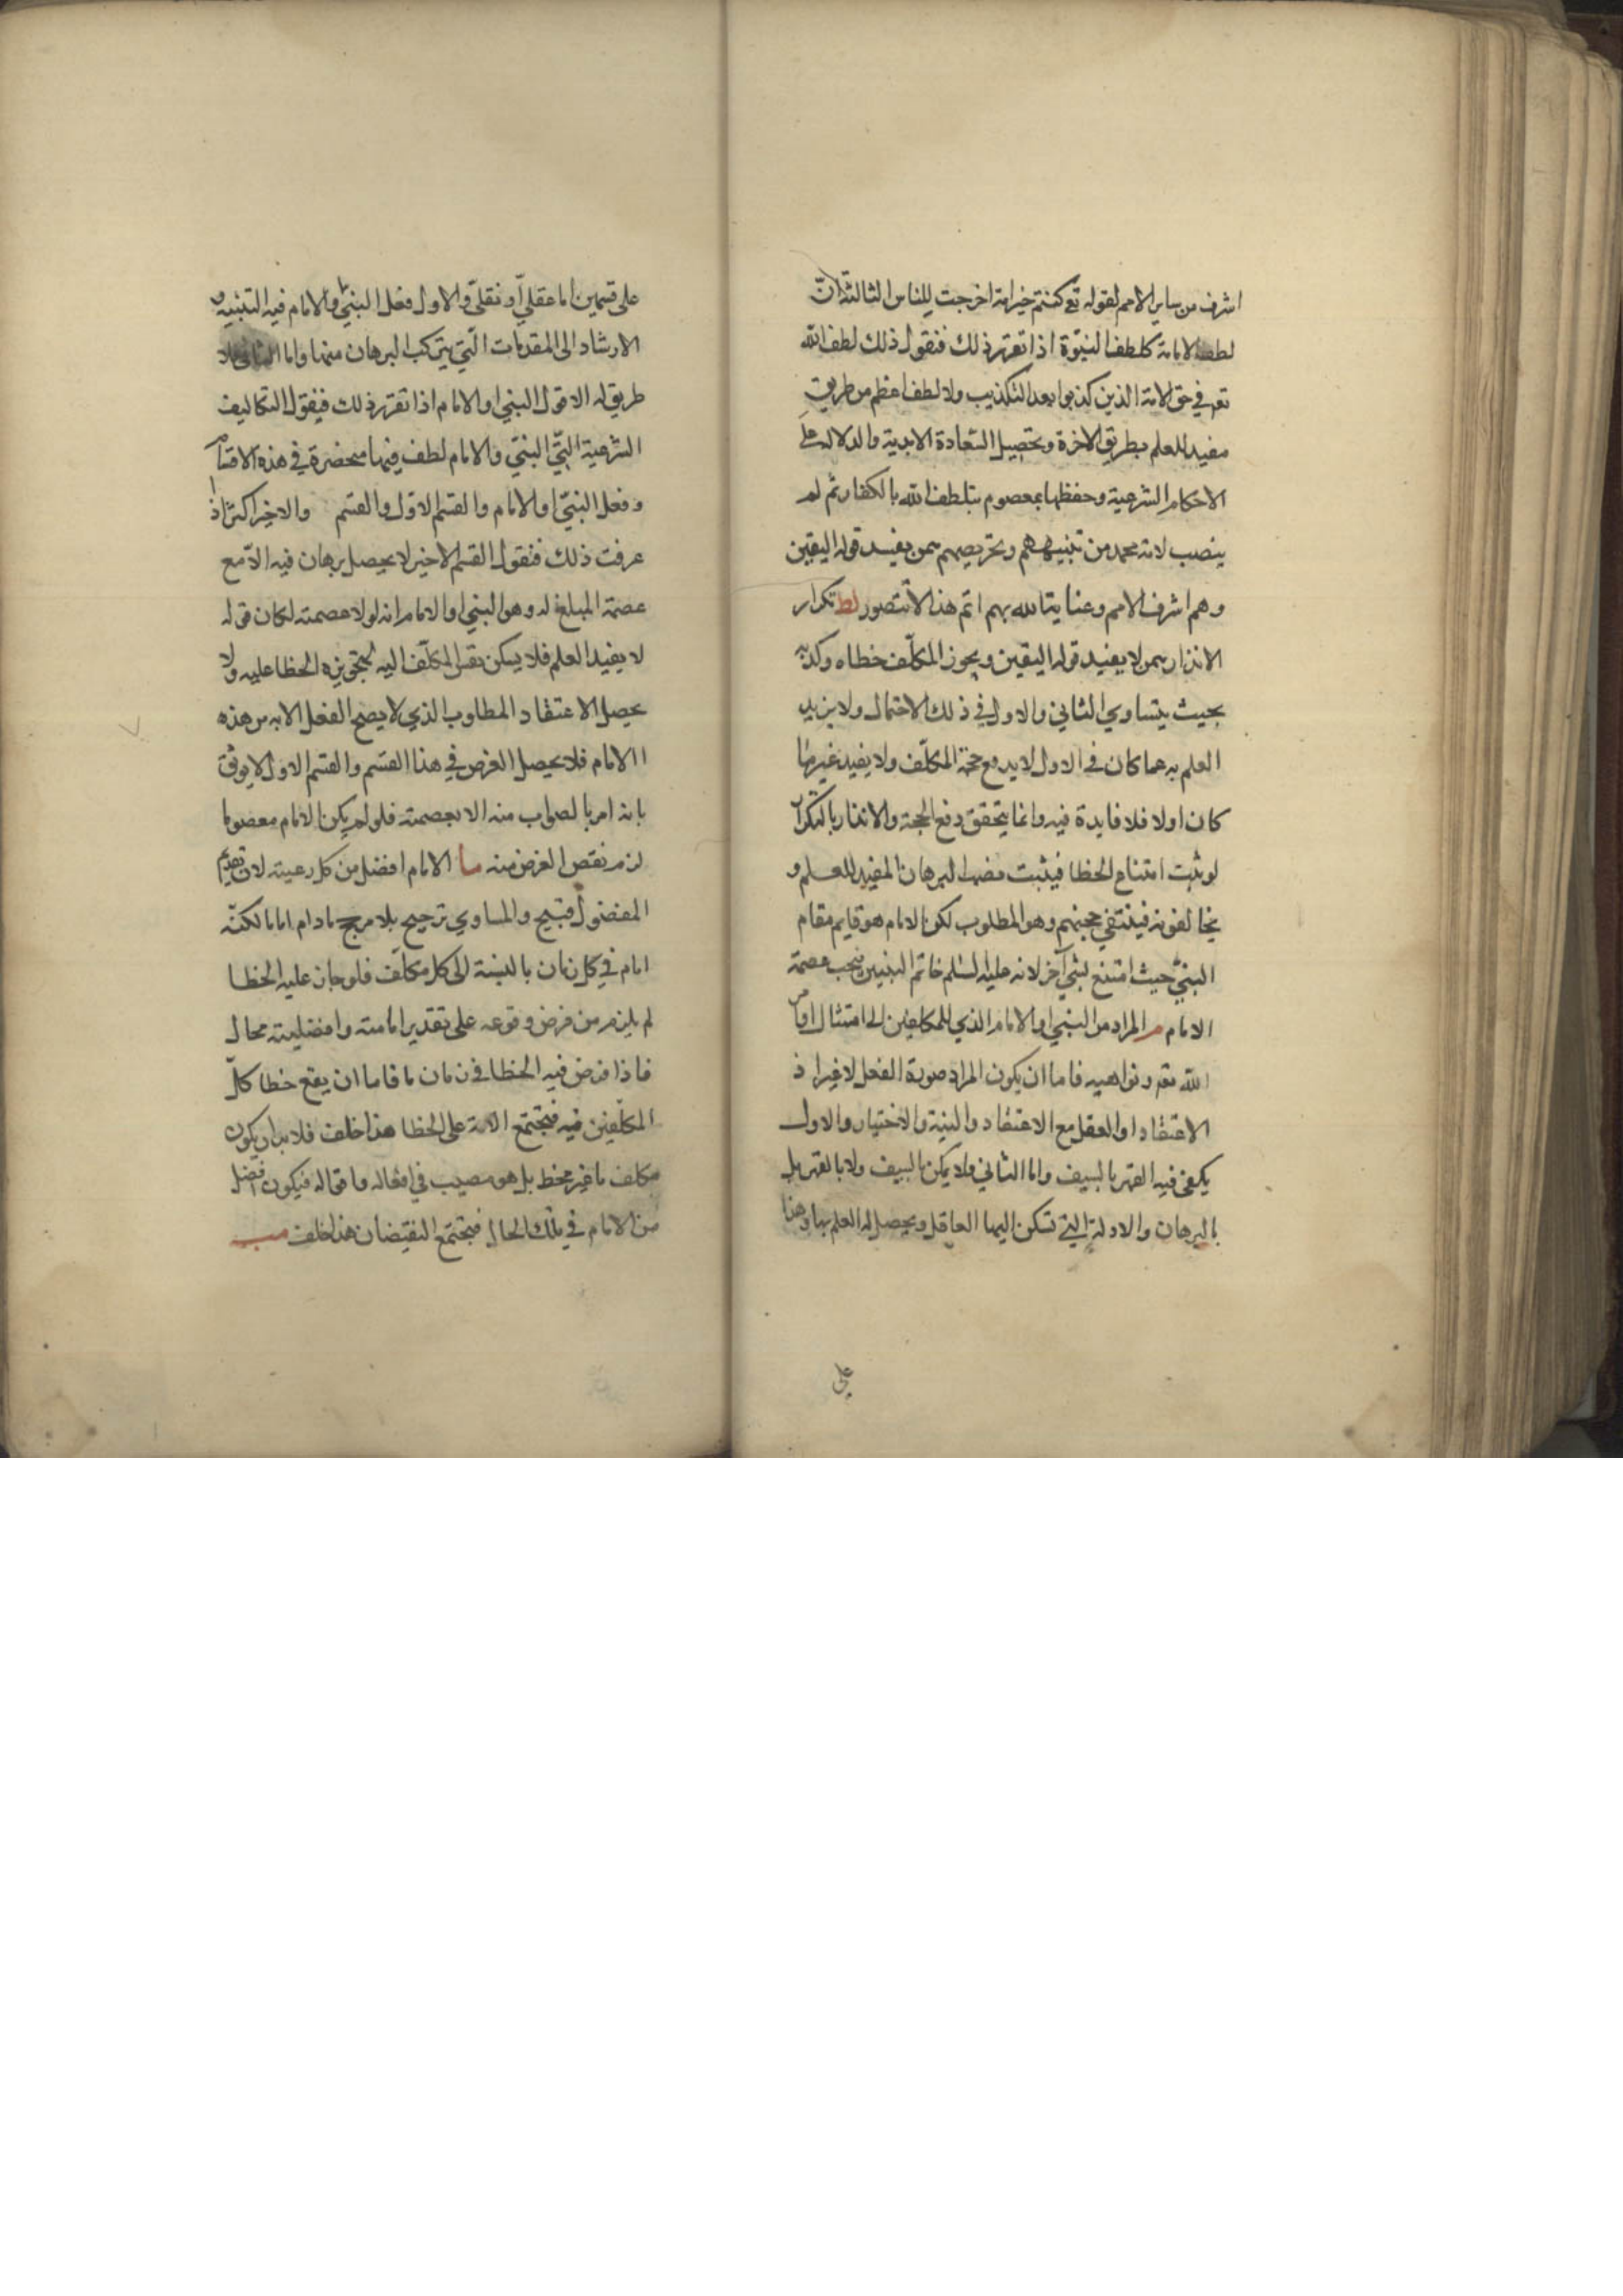 اشرف من ساير الامم لقوله تع كنتم خير امة اخرجت للناس الثالثة انّ
لطف الامامة كلطف النبوّة اذا تقرر ذلك فنقول ذلك لطف الله
تعم في حق الامة الذين كذبوا بعد التكذيب ولا لطف اعظم من طريق
مفيد للعلم بطريق الاخرة وتحصيل السّعادة الابدية والدلالة على
الاحكام الشرعية وحفظها بمعصوم يتلطف الله بالكفار ثم لم
ينصب لامة محمد من تنبيههم وتحريصهم بمن يفيد قوله اليقين
وهم اشرف الامم وعناية الله بهم اتم هذا لا يتصور لط تكرار
الانذار بمن لا يفيد قوله اليقين ويجوز المكلّف خطاه وكذبه
بحيث يتساوي الثاني والاول في ذلك الاحتمال ولا يزيد
العلم به عما كان في الاول لا يدفع حجة المكلّف ولا يفيد غير ما
كان اولا فلا فايدة فيه وانما يتحقق دفع الحجة والانذار بالتكرار
لو ثبت امتناع الخطا فيثبت مضمر البرهان المفيد للعلم و
يخالفونه فينتفي حجتهم وهو المطلوب لكن الامام هو قايم مقام
النبيّ حيث امتنع لشي آخر لانه عليه السّلم خاتم النبيين فيجب عصمة
الامام مر المراد من النبي او الامام الذي للمكلفين الى امتثال اوامر
الله تعم ونواهيه فاما ان يكون المراد صورة الفعل لا غير اذ
الاعتقاد او العقل مع الاعتقاد والنية والاختيار والاول
يكفي فيه القهر بالسيف واما الثاني فلا يمكن بالسيف ولا بالقهر بل
بالبرهان والادلة التي تسكن اليها العاقل ويحصل له العلم بها وهذا
على
على قسمين اما عقليّ او نقليّ والاول فعل النبيّ والامام فيه التنبيه و
الارشاد الى المقدمات التي يتركب البرهان منها واما الثاني فلا
طريق له الا قول النبي او الامام اذا تقرر ذلك فيقول التكاليف
الشرعية التّي النبيّ والامام لطف فيها منحصرة في هذه الاقسام
وفعل النبيّ او الامام والقسم الاول والقسم والاخير اكثر اذا
عرفت ذلك فنقول القسم الاخير لا يحصل برهان فيه الاّ مع
عصمة المبلغ له وهو النبي او الامام انه لولا عصمته لكان قوله
لا يفيد العلم فلا يسكن نفس المكلّف اليه لتجويزه الخطا عليه ولا
يحصل الاعتقاد المطلوب الذي لا يصح الفعل الا به من هذه
االامام فلا يحصل الغرض في هذا القسم والقسم الاول لا يوثق
بانه امر بالصواب منه الا بعصمته فلو لم يكن الامام معصوما
لزم نقض الغرض منه ما الامام افضل من كل رعيته لان تقديم
المفضول قبيح والمساوي ترجيح بلا مرجح مادام اماما لكنّه
امام في كل زمان بالنسبة الى كل مكلّف فلو جاز عليه الخطا
لم يلزم من فرض وقوعه على تقدير امامته وافضليته محال
فاذا فرض فيه الخطا في زمان ما فاما ان يقع خطا كلّ
المكلّفين فيه فتجتمع الامة على الخطا هذا خلف فلا بد ان يكون
مكلف ما غير مخط بل هو مصيب في افعاله واقواله فيكون افضل
من الامام في تلك الحال فيجتمع النقيضان هذا خلف مب